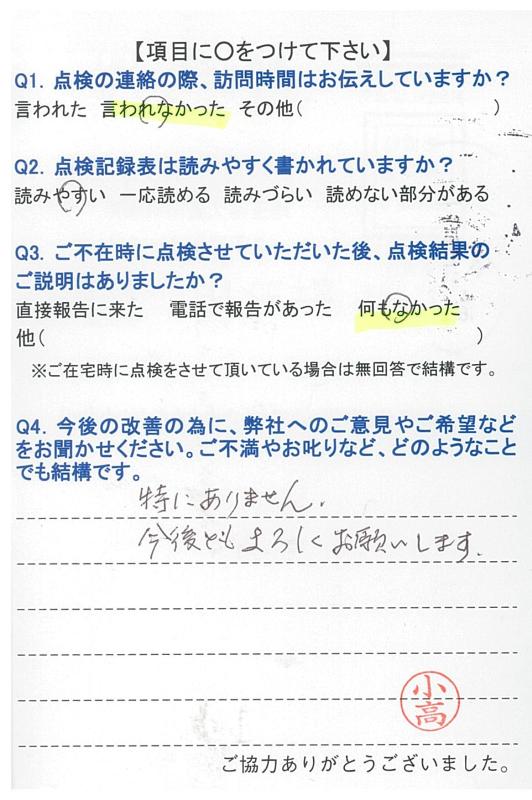 【項目に〇をつけて下さい】
Q1. 点検の連絡の際、訪問時間はお伝えしていますか？
言われた 言われなかった その他( )
Q2. 点検記録表は読みやすく書かれていますか？
読みやすい 一応読める 読みづらい 読めない部分がある
Q3. ご不在時に点検させていただいた後、点検結果の
ご説明はありましたか？
直接報告に来た 電話で報告があった 何もなかった
他( )
※ご在宅時に点検をさせて頂いている場合は無回答で結構です。
Q4. 今後の改善の為に、弊社へのご意見やご希望など
をお聞かせください。ご不満やお叱りなど、どのようなこと
でも結構です。
特にありません.
今後ともよろしくお願いします.
小高
ご協力ありがとうございました。